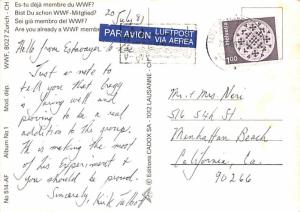 Es-tu déjà membre du WWF?
Bist Du schon WWF-Mitglied?
Sei già membro del WWF?
Are you already a WWF memb
WWF, 8027 Zurich - CH
Mod. dép.
Album No 1
No 514-AF
© Editions CADOX SA - 1002 LAUSANNE - CH
20 July 81
PAR AVION LUFTPOST
VIA AEREA
HELVETIA
100
Hello from Estavayer le Lac
Just a note to
tell you that Gregg
is faring well and
proving to be a real
addition to the group.
He is making the most
of his experience and
you should be proud.
Sincerely, Kirk Talbott
Mr & Mrs Neri
516 5th St
Manhattan Beach
California, Ca.
90266